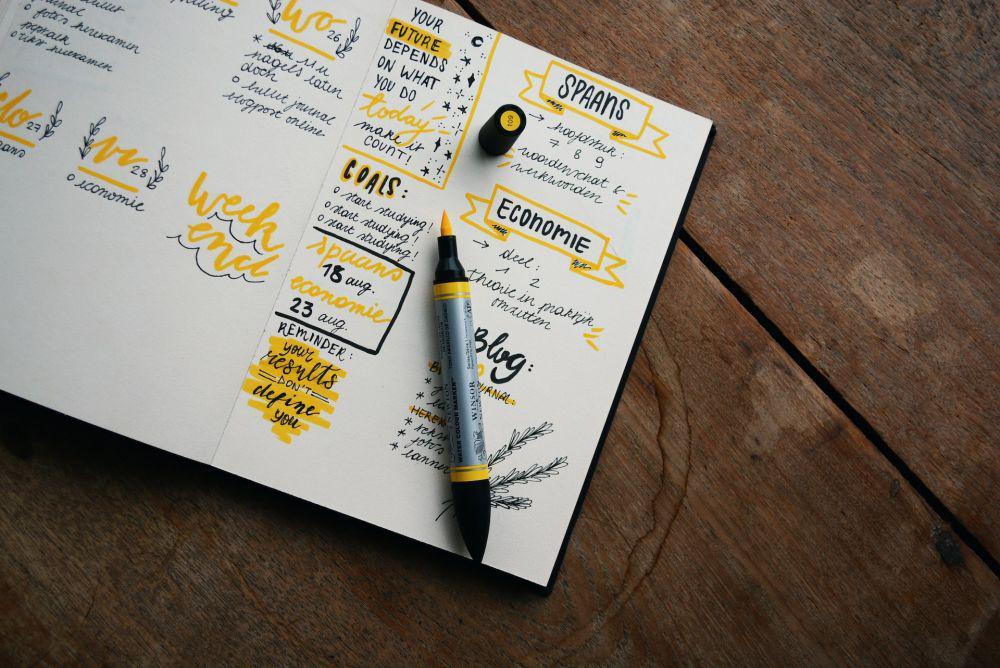 fotos herexamen
herexamen
wo 26
* 11u
nagels laten
doen
o bullet journal
blogpost online
do 27
vr 28
o economie
week
end
YOUR
FUTURE
DEPENDS
ON WHAT
YOU DO
today
make it
COUNT!
GOALS:
o start studying!
o start studying!
o start studying!
spaans
18 aug.
economie
23 aug.
REMINDER:
your
results
DON'T
define
you
SPAANS
→ hoofdstuk:
7 8 9
woordenschat &
werkwoorden
ECONOMIE
→ deel:
1 2
theorie in praktijk
omzetten
Blog:
109
WATER COLOUR MARKER
WINSOR